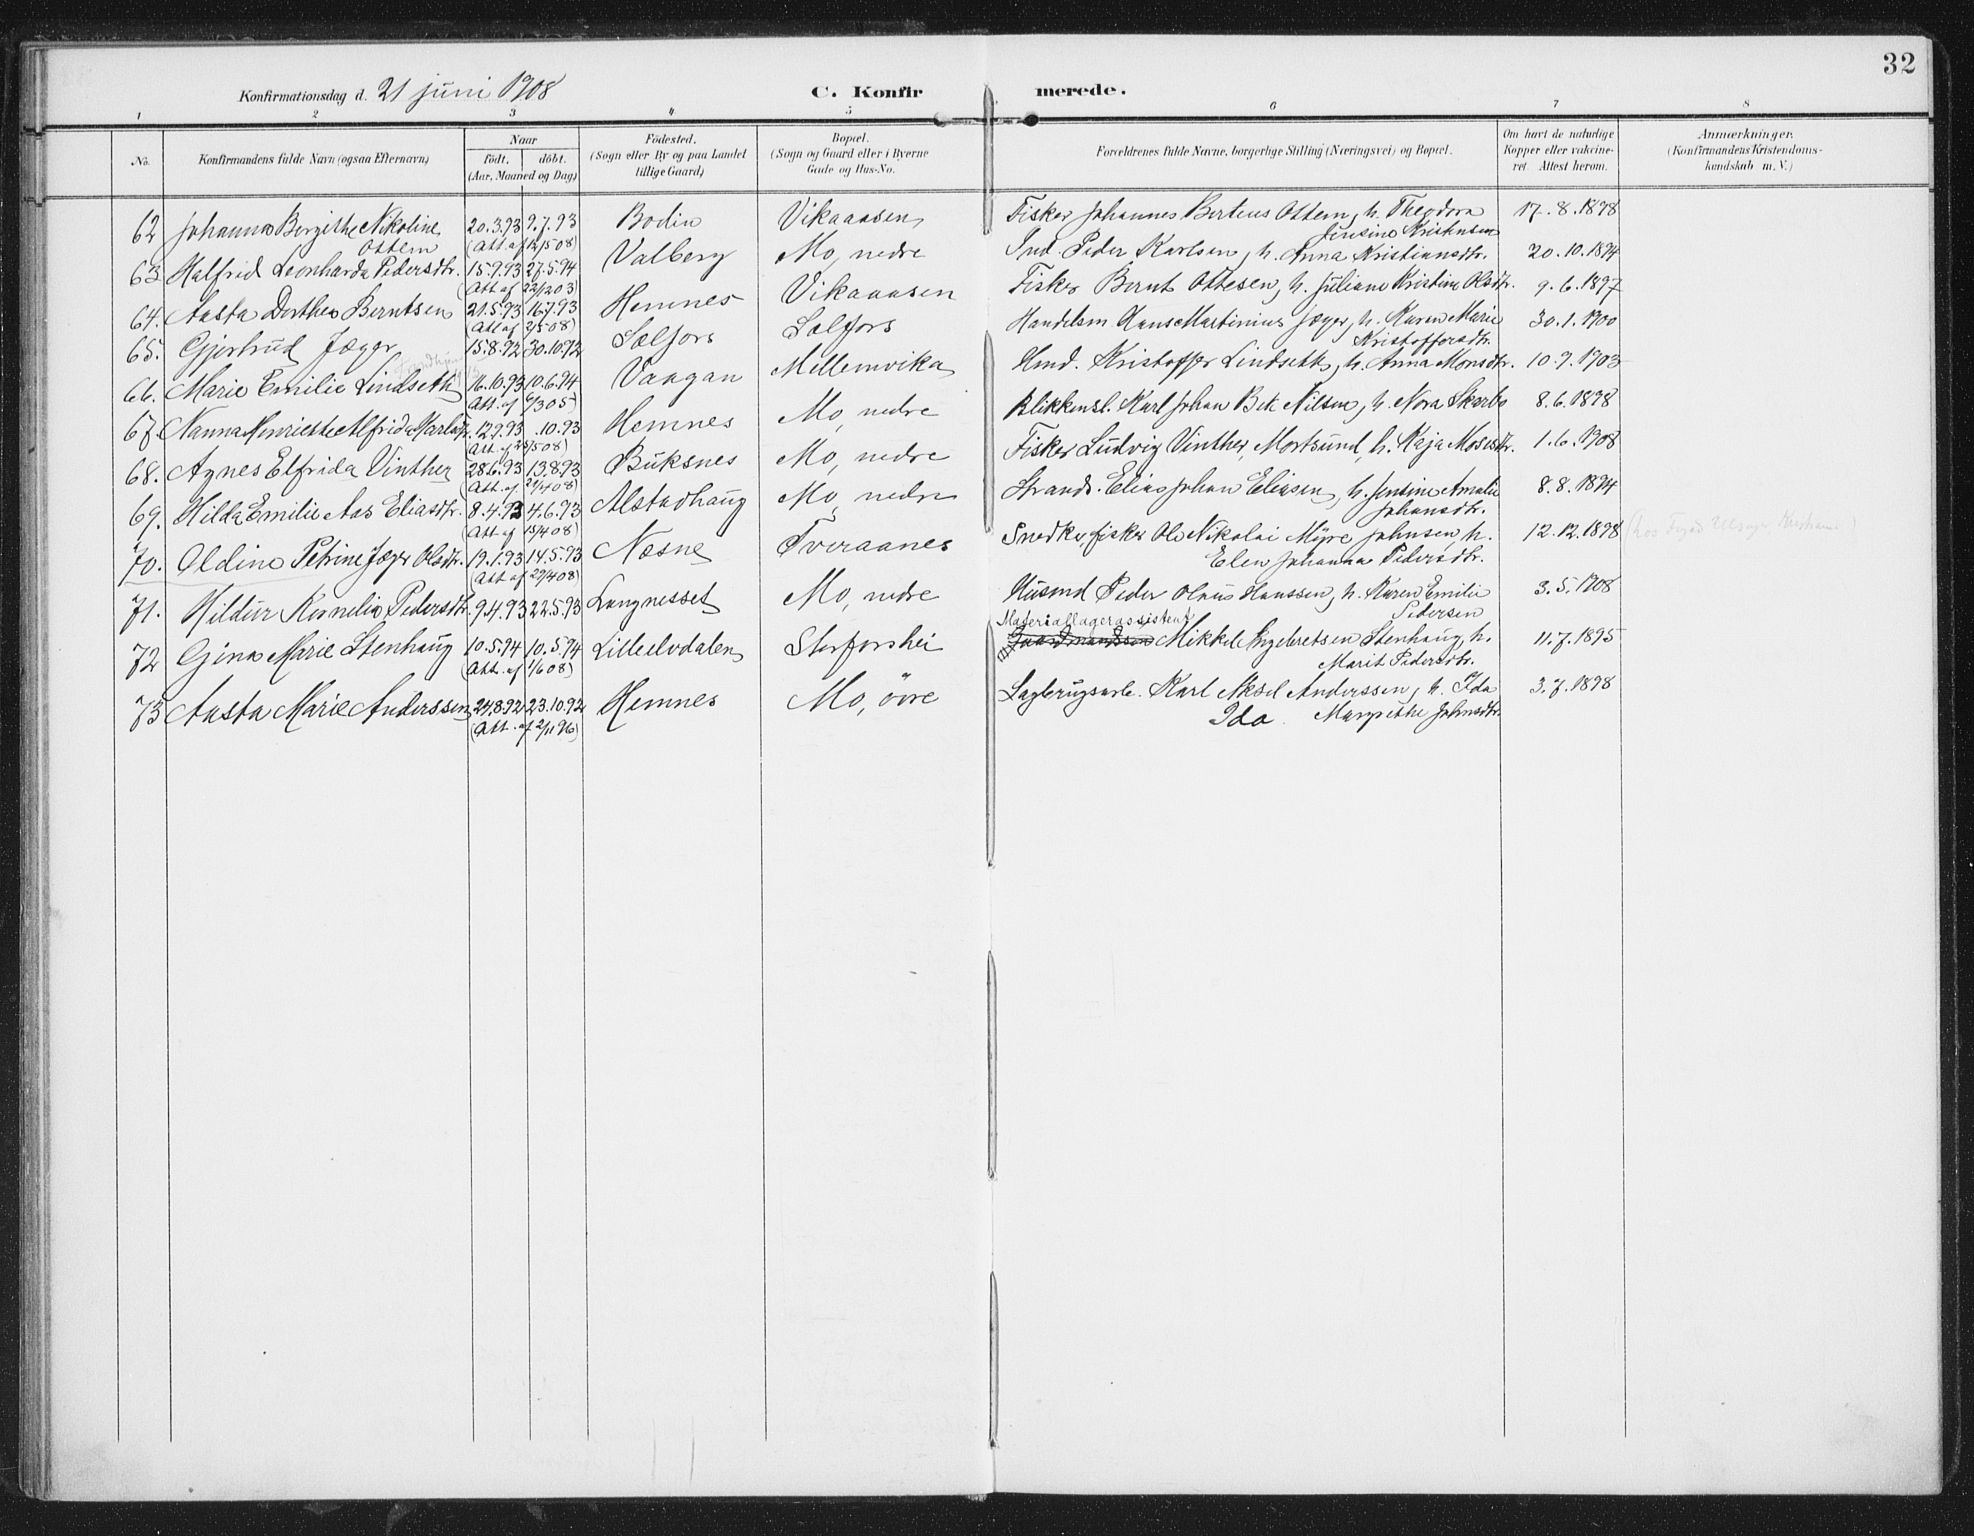 32
Konfirmationsdag d. 21 juni 1908
C. Konfirmerede.
1 2 3 4 5 6 7 8
No. Konfirmandens fulde Navn (ogsaa Efternavn) Naar födt. döbt. (Aar, Maaned og Dag) Födested. (Sogn eller By og paa Landet tillige Gaard) Bopæl. (Sogn og Gaard eller i Byerne Gade og Hus-No. Forældrenes fulde Navne, borgerlige Stilling (Næringsvei) og Bopæl. Om havt de naturlige Kopper eller vakcineret. Attest herom. Anmærkninger. (Konfirmandens Kristendomskundskab m. V.)
62 Johanna Bergithe Nikoline 20.3.93 9.7.93 Bodin Vikaaasen Fisker Johannes Berteus Ottem, h. Theodora 17.8.1898
Ottem (Att. af 12/5 08) Jensine Kristensen
63 Halfrid Leonharda Pedersdtr. 15.9.93 27.5.94 Valberg Mo, nedre Ind. Peder Karlsen, h. Anna Kristiansdtr. 20.10.1894
(Att af 22/12 03)
64. Aasta Dorthea Berntsen 21.5.93 16.7.93 Hemnes Vikaaasen Fisker Bernt Ottesen, h. Juliane Kristine Olsdtr. 9.6.1897
(Att af 2/5 08)
65. Gjertrud Jæger 15.8.92 30.10.92 Sælfors Sælfors Handelsm Hans Martinius Jæger, h. Karen Marie 30.1.1900
Kristoffersdtr.
66. Marie Emilie Lindseth 16.10.93 10.6.94 Vaagan Mellemvika Hmd. Kristoffer Lindseth, h. Anna Monsdtr. 10.9.1903
Att. af 6/3 05)
67. Nanna Henriette Alfrida Karlsdtr. 12.9.93 .10.93 Hemnes Mo, nedre Blikkensl. Karl Johan Bek Nilsen, h. Nora Skarbo 8.6.1898
Att. af 25/5 08)
68. Agnes Elfrida Vinther 28.6.93 13.8.93 Buksnes Mo, nedre Fisker Ludvig Vinther, Mortsund, h. Kaja Mosesdtr. 1.6.1908
(Att. af 22/4 08)
69. Hilda Emilie Aas Eliasdtr. 8.4.93 4.6.93 Alstadhaug Mo, nedre Strands. Elias Johan Eliasen, h. Jensine Amalie 8.8.1894
(Att af 15/4 08) Johansdtr.
70. Oldine Petrine Jæger Olsdtr. 19.1.93 14.5.93 Næsne Tveraanes Snedker, fisker Ole Nikolai Myre Johnsen, h. 12.12.1898
(Att af 29/4 08) Elen Johanna Pedersdtr.
71. Hildur Kornelia Pedersdtr. 9.4.93 22.5.93 Langnesset Mo, nedre Husmd Peder Olaus Hanssen, h. Karen Emilie 3.5.1908
Pedersen
Materiallagerassistent
72 Gina Marie Stenhaug 10.5.94 10.5.94 Lilleelvdalen Storforshei Gaardmandsen Mikkel Engebretsen Stenhaug, h. 11.7.1895
(Att. af 1/6 08) Marit Pedersdtr.
73 Aasta Marie Anderssen 24.8.92 23.10.92 Hemnes Mo, övre Sagbrugsarb. Karl Aksel Anderssen, h. Ida 3.7.1898
(Att. af 2/11 96) Ida. Margrethe Johnsdtr.